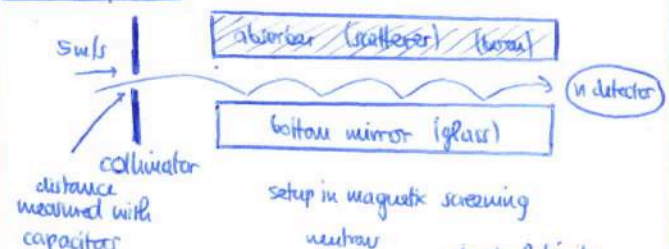 absorber (scatterer) (boron)
5m/s
n detector
bottom mirror (glass)
collimator
distance
measured with
capacitors
setup in magnetic screening
neutron